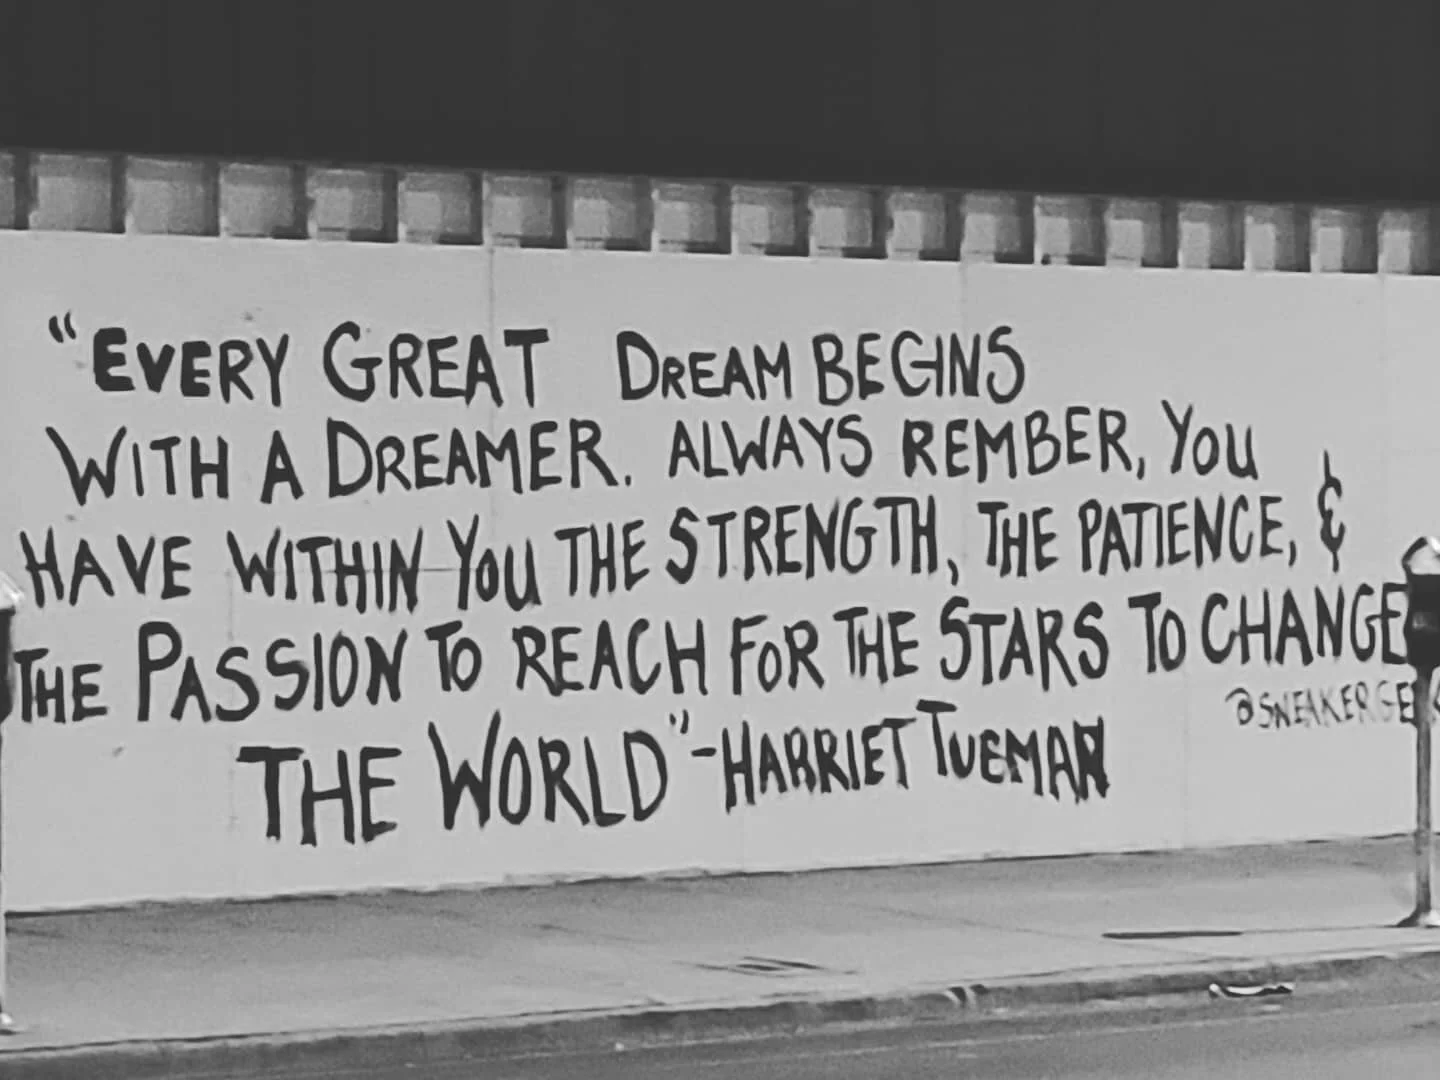 “EVERY GREAT DREAM BEGINS
WITH A DREAMER. ALWAYS REMBER, YOU
HAVE WITHIN YOU THE STRENGTH, THE PATIENCE, &
THE PASSION TO REACH FOR THE STARS TO CHANGE
THE WORLD”-HARRIET TUBMAN